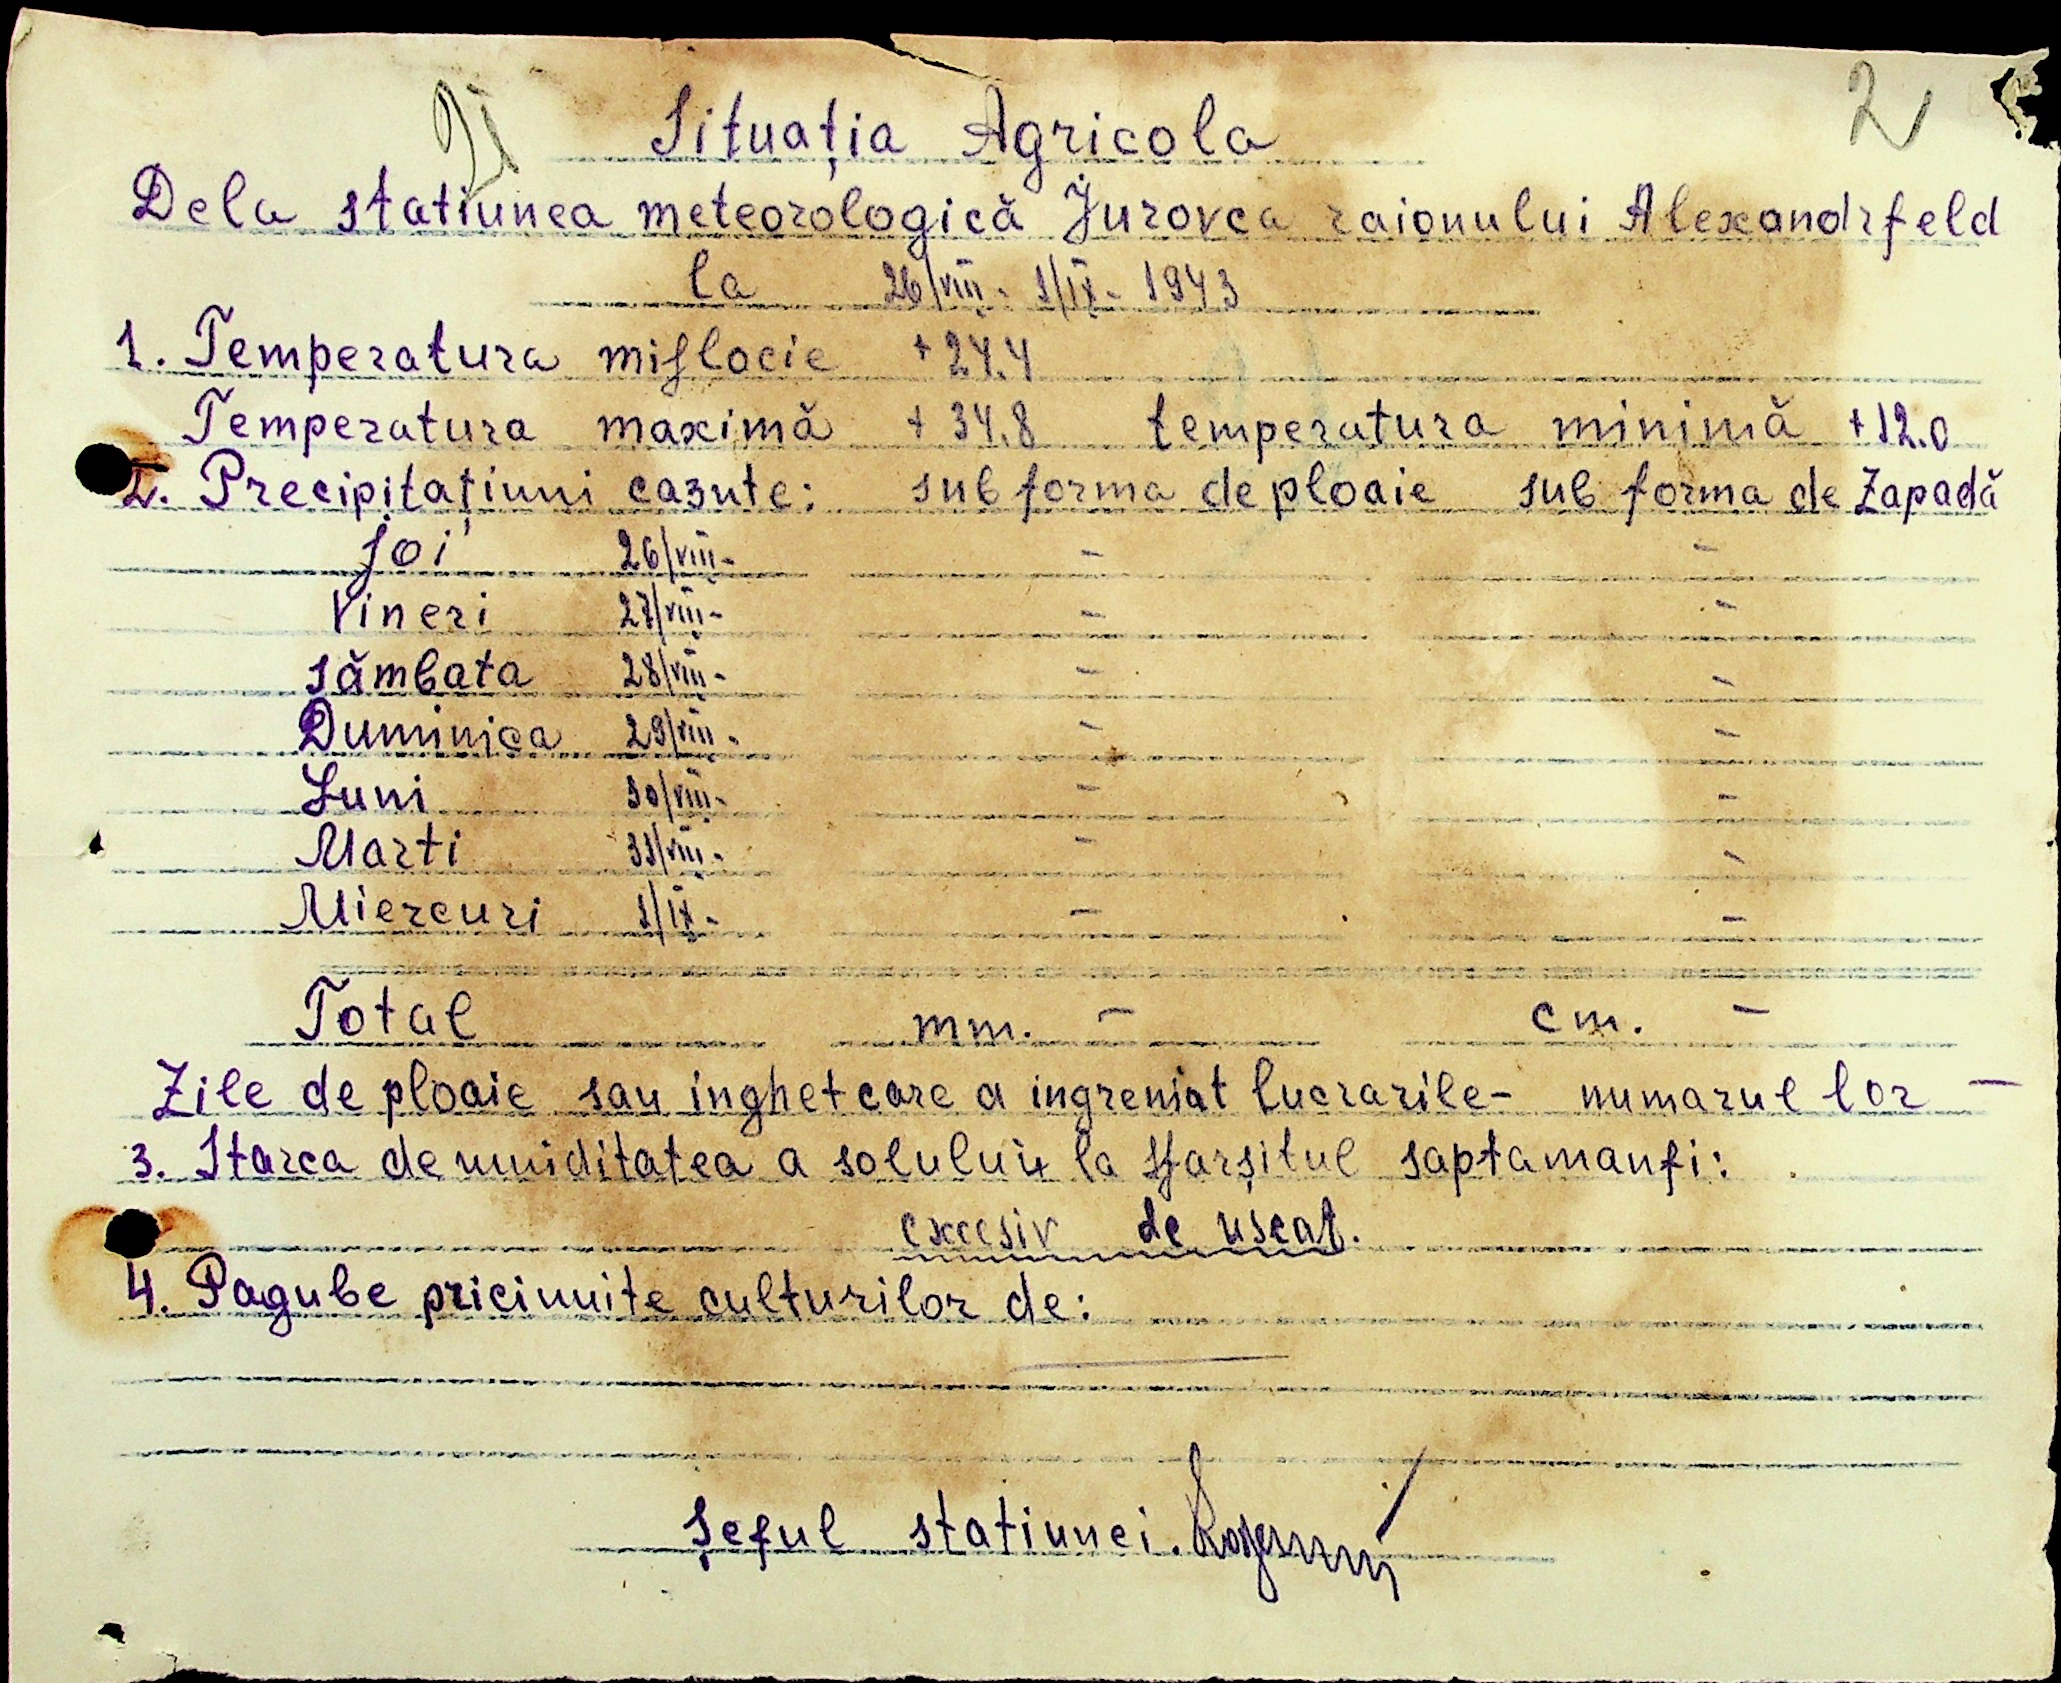 2
Situația Agricola
Dela statiunea meteorologică Jurovca raionului Alexandrfeld
la 26/VIII - 1/IX - 1943
1. Temperatura mijlocie +24.4
Temperatura maximă +34.8 temperatura minimă +12.0
2. Precipitațiuni cazute: sub forma de ploaie sub forma de Zapadă
Joi 26/VIII - - -
Vineri 27/VIII - - -
sămbata 28/VIII - - -
Duminica 29/VIII - - -
Luni 30/VIII - - -
Marti 31/VIII - - -
Miercuri 1/IX - - -
Total mm. - cm. -
Zile de ploaie sau inghet care a ingreniat lucrarile - numarul lor -
3. Starea de umiditatea a solului la sfarșitul saptamanii:
excesiv de uscat.
4. Pagube pricinuite culturilor de:
Șeful statiunei.